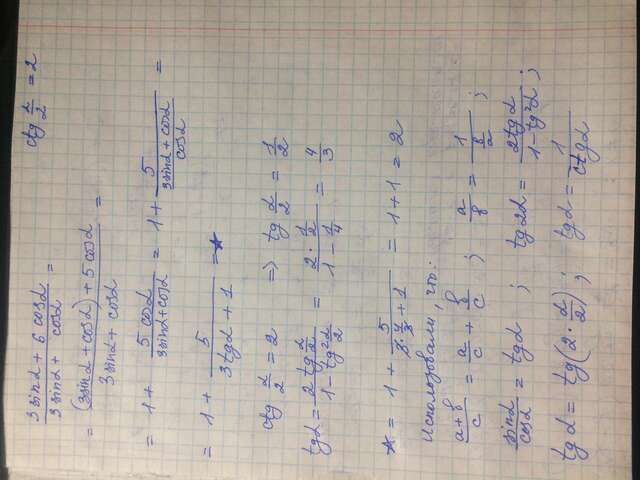 (3sinα + 6cosα)/(3sinα + cosα) =          ctg α/2 = 2
= ((3sinα + cosα) + 5cosα)/(3sinα + cosα) =
= 1 + 5cosα/(3sinα + cosα) = 1 + 5/((3sinα + cosα)/cosα) =
= 1 + 5/(3tgα + 1) = ☆
ctg α/2 = 2 ⇒ tg α/2 = 1/2
tgα = (2tg α/2)/(1 - tg² α/2) = (2 · 1/2)/(1 - 1/4) = 4/3
☆ = 1 + 5/(3 · 4/3 + 1) = 1 + 1 = 2
Использовали, что:
(a + b)/c = a/c + b/c ; a/b = 1/(b/a) ;
sinα/cosα = tgα ; tg2α = 2tgα/(1 - tg²α) ;
tgα = tg(2 · α/2) ; tgα = 1/ctgα